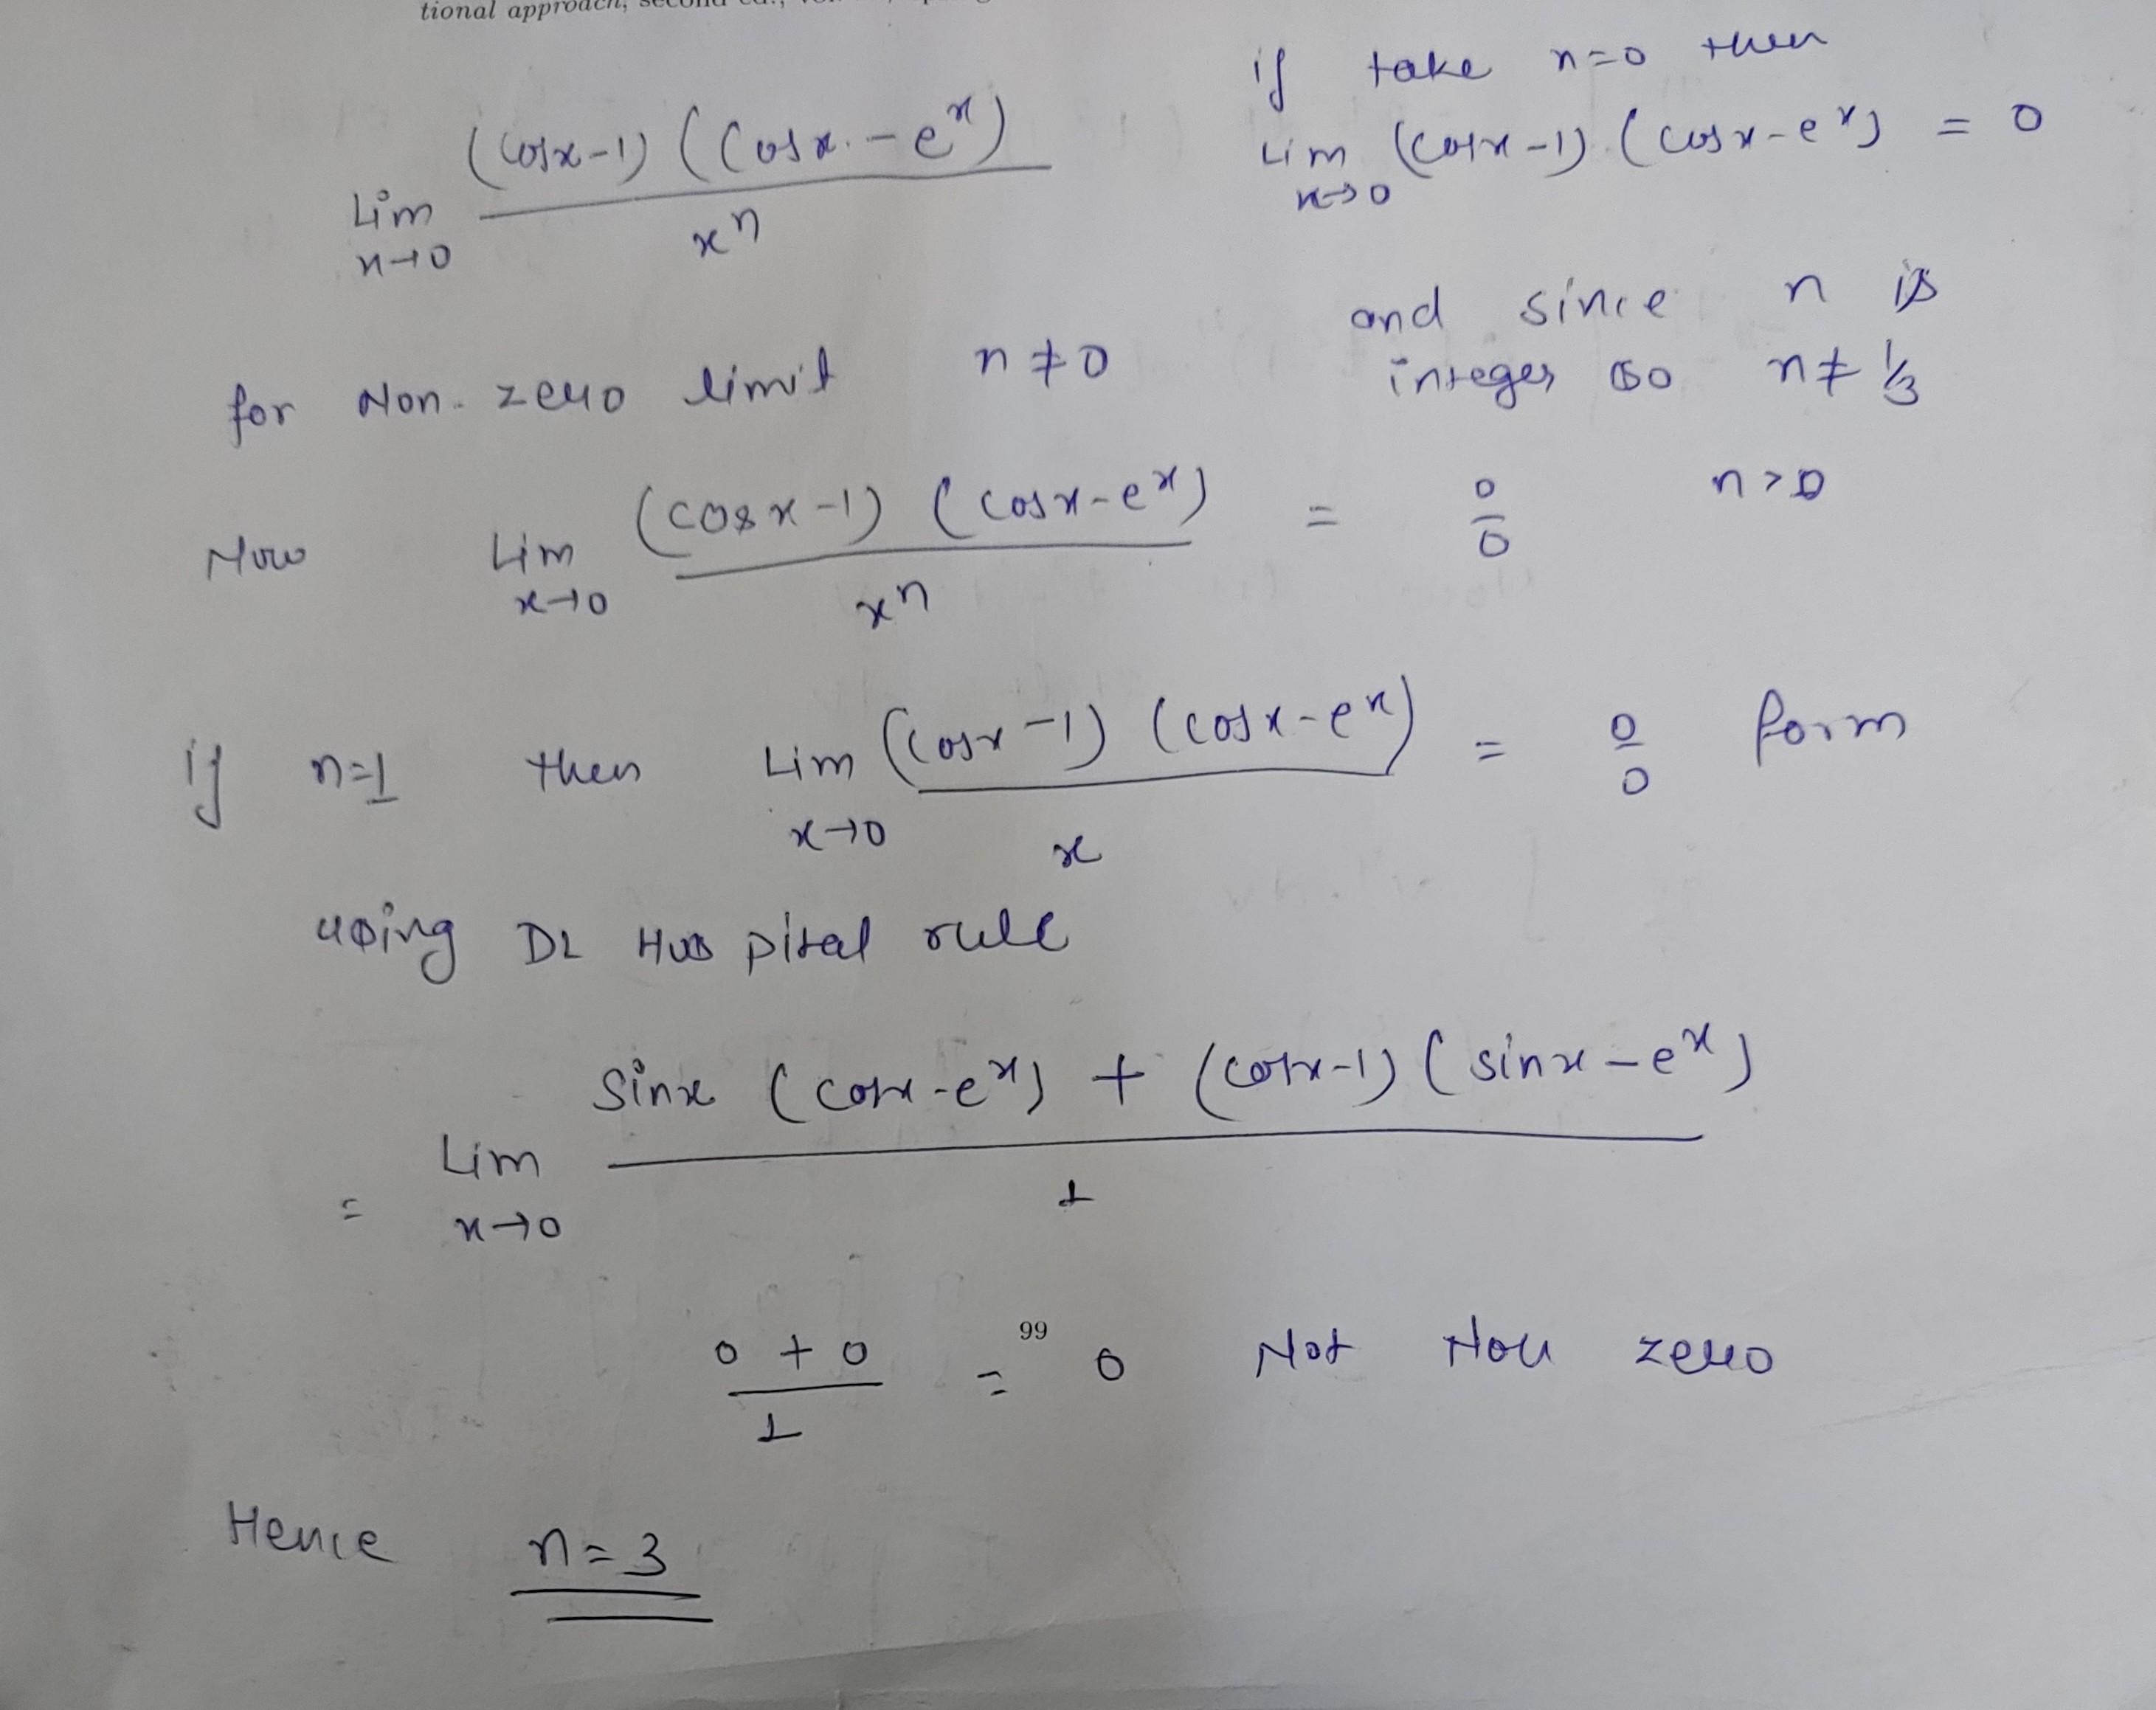 tional approach, second ed.,
Lim x→0 (cosx-1) (cosx-e^x) / x^n
if take n=0 then
Lim x→0 (cosx-1) (cosx-e^x) = 0
for Non-zero limit n≠0
and since n is
integer so n≠1/3
Now Lim x→0 (cosx-1) (cosx-e^x) / x^n = 0/0 n>0
if n=1 then Lim x→0 (cosx-1) (cosx-e^x) / x = 0/0 form
using DL Hospital rule
= Lim x→0 Sinx (cosx-e^x) + (cosx-1) (sinx-e^x) / 1
0+0 / 1 = 0 Not Non zero
99
Hence n=3